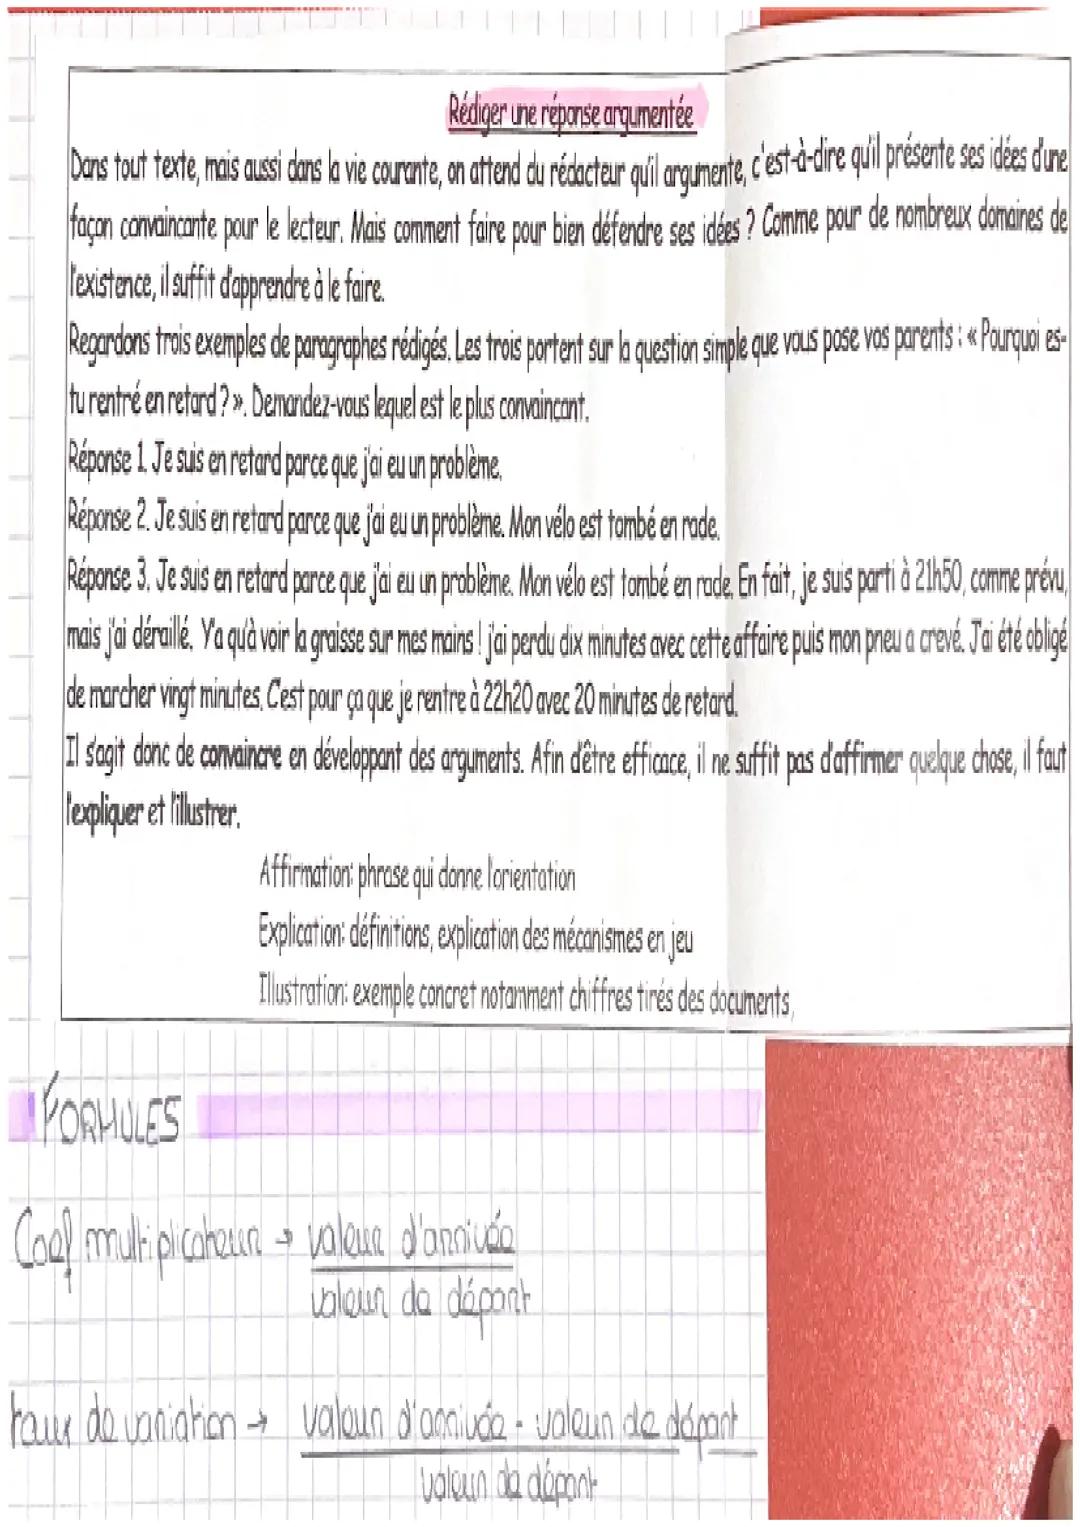 Rédiger une réponse argumentée
Dans tout texte, mais aussi dans la vie courante, on attend du rédacteur qu'il argumente, c'est-à-dire qu'il présente ses idées d'une
façon convaincante pour le lecteur. Mais comment faire pour bien défendre ses idées ? Comme pour de nombreux domaines de
l'existence, il suffit d'apprendre à le faire.
Regardons trois exemples de paragraphes rédigés. Les trois portent sur la question simple que vous pose vos parents : « Pourquoi es-
tu rentré en retard ? ». Demandez-vous lequel est le plus convaincant.
Réponse 1. Je suis en retard parce que j'ai eu un problème.
Réponse 2. Je suis en retard parce que j'ai eu un problème. Mon vélo est tombé en rade.
Réponse 3. Je suis en retard parce que j'ai eu un problème. Mon vélo est tombé en rade. En fait, je suis parti à 21h50, comme prévu,
mais j'ai déraillé. Y'a qu'à voir la graisse sur mes mains ! j'ai perdu dix minutes avec cette affaire puis mon pneu a crevé. J'ai été obligé
de marcher vingt minutes. C'est pour ça que je rentre à 22h20 avec 20 minutes de retard.
Il s'agit donc de convaincre en développant des arguments. Afin d'être efficace, il ne suffit pas d'affirmer quelque chose, il faut
l'expliquer et l'illustrer.
Affirmation: phrase qui donne l'orientation
Explication: définitions, explication des mécanismes en jeu
Illustration: exemple concret notamment chiffres tirés des documents,
FORMULES
Coef multiplicateur → valeur d'arrivée
valeur de départ
taux de variation → valeur d'arrivée - valeur de départ
valeur de départ